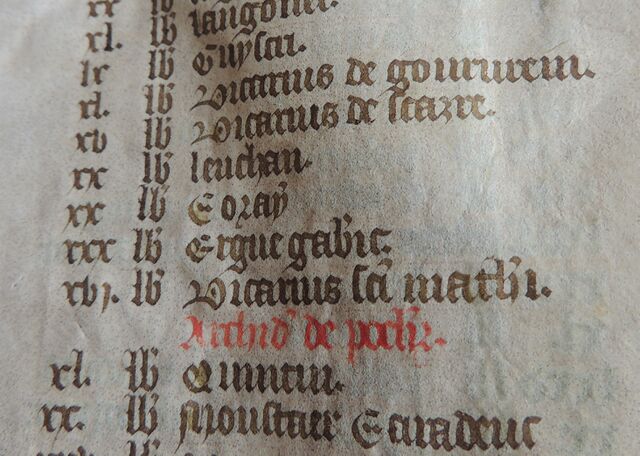 xx lb langolen.
xl. lb Guyscri.
lx lb Vicarius de goururein.
xl. lb Vicarius de scazre.
xv lb leuchan.
xx lb Coray
xx lb Ergue gab'ic.
xxx lb Vicarius sci math'i.
xvj. lb
Archid' de poch'r.
xl. lb
xx. lb Moustair Caradeuc